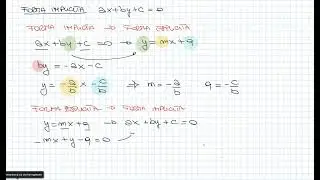 FORMA IMPLICITA ax+by+c=0
FORMA IMPLICITA → FORMA ESPLICITA
ax+by+c=0 → y=mx+q
by = -ax-c
y = -a/b x - c/b ⇒ m = -a/b q = -c/b
FORMA ESPLICITA → FORMA IMPLICITA
y=mx+q → ax+by+c=0
-mx+y-q=0